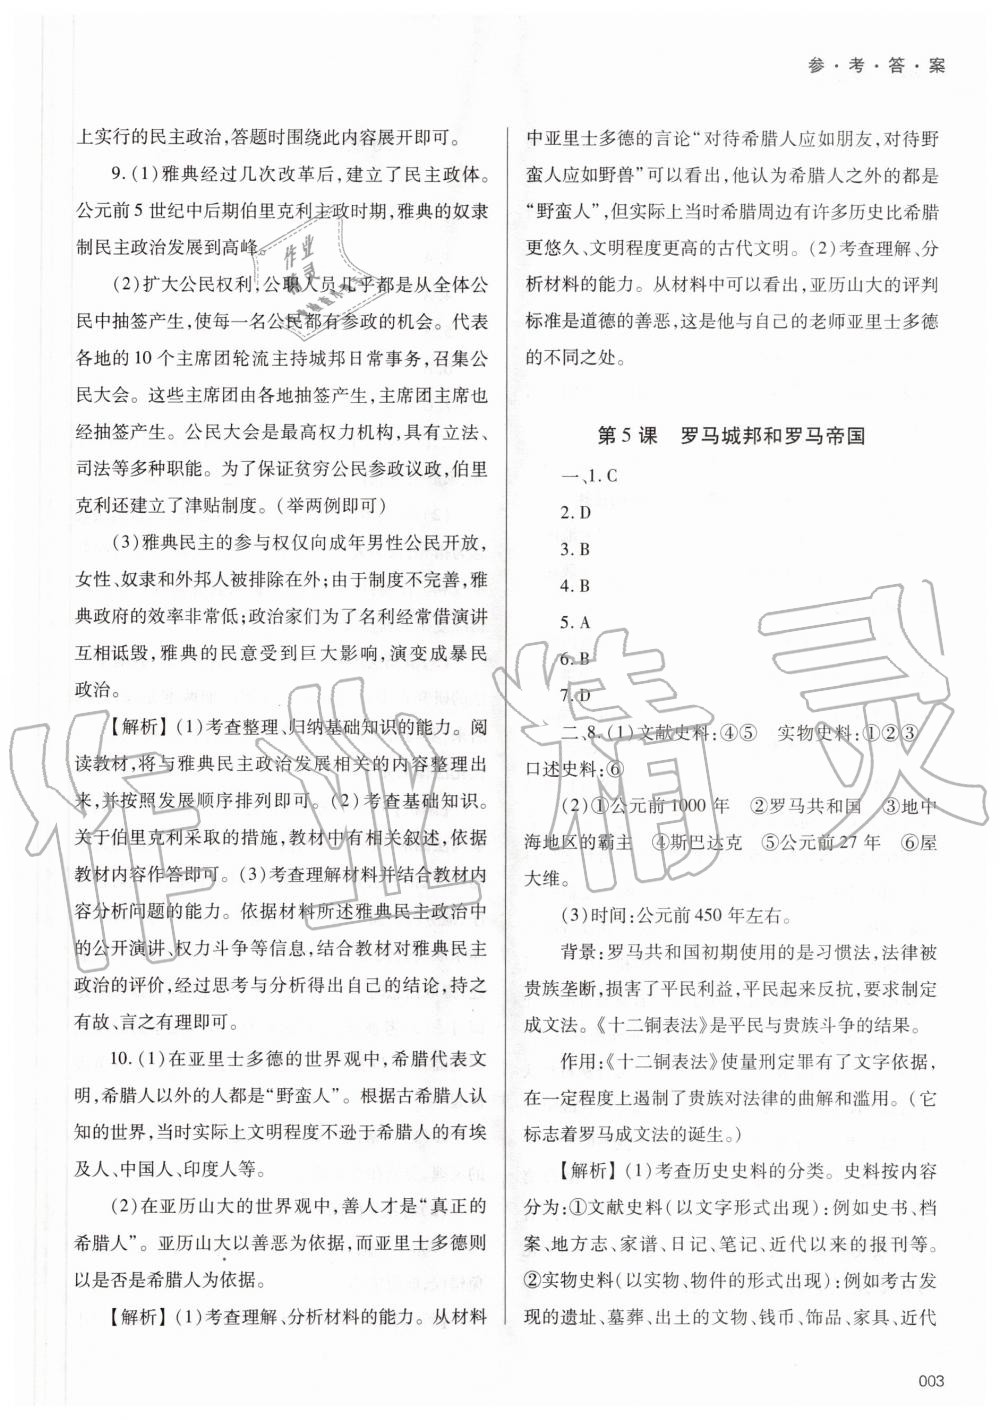 参·考·答·案
上实行的民主政治,答题时围绕此内容展开即可。
9.(1)雅典经过几次改革后,建立了民主政体。
公元前5世纪中后期伯里克利主政时期,雅典的奴隶
制民主政治发展到高峰。
(2)扩大公民权利,公职人员几乎都是从全体公
民中抽签产生,使每一名公民都有参政的机会。代表
各地的10个主席团轮流主持城邦日常事务,召集公
民大会。这些主席团由各地抽签产生,主席团主席也
经抽签产生。公民大会是最高权力机构,具有立法、
司法等多种职能。为了保证贫穷公民参政议政,伯里
克利还建立了津贴制度。(举两例即可)
(3)雅典民主的参与权仅向成年男性公民开放,
女性、奴隶和外邦人被排除在外;由于制度不完善,雅
典政府的效率非常低;政治家们为了名利经常借演讲
互相诋毁,雅典的民意受到巨大影响,演变成暴民
政治。
【解析】(1)考查整理、归纳基础知识的能力。阅
读教材,将与雅典民主政治发展相关的内容整理出
来,并按照发展顺序排列即可。(2)考查基础知识。
关于伯里克利采取的措施,教材中有相关叙述,依据
教材内容作答即可。(3)考查理解材料并结合教材内
容分析问题的能力。依据材料所述雅典民主政治中
的公开演讲、权力斗争等信息,结合教材对雅典民主
政治的评价,经过思考与分析得出自己的结论,持之
有故、言之有理即可。
10.(1)在亚里士多德的世界观中,希腊代表文
明,希腊人以外的人都是“野蛮人”。根据古希腊人认
知的世界,当时实际上文明程度不逊于希腊人的有埃
及人、中国人、印度人等。
(2)在亚历山大的世界观中,善人才是“真正的
希腊人”。亚历山大以善恶为依据,而亚里士多德则
以是否是希腊人为依据。
【解析】(1)考查理解、分析材料的能力。从材料
中亚里士多德的言论“对待希腊人应如朋友,对待野
蛮人应如野兽”可以看出,他认为希腊人之外的都是
“野蛮人”,但实际上当时希腊周边有许多历史比希腊
更悠久、文明程度更高的古代文明。(2)考查理解、分
析材料的能力。从材料中可以看出,亚历山大的评判
标准是道德的善恶,这是他与自己的老师亚里士多德
的不同之处。
第5课 罗马城邦和罗马帝国
一、1.C
2.D
3.B
4.B
5.A
6.B
7.D
二、8.(1)文献史料:④⑤ 实物史料:①②③
口述史料:⑥
(2)①公元前1000年 ②罗马共和国 ③地中
海地区的霸主 ④斯巴达克 ⑤公元前27年 ⑥屋
大维。
(3)时间:公元前450年左右。
背景:罗马共和国初期使用的是习惯法,法律被
贵族垄断,损害了平民利益,平民起来反抗,要求制定
成文法。《十二铜表法》是平民与贵族斗争的结果。
作用:《十二铜表法》使量刑定罪有了文字依据,
在一定程度上遏制了贵族对法律的曲解和滥用。(它
标志着罗马成文法的诞生。)
【解析】(1)考查历史史料的分类。史料按内容
分为:①文献史料(以文字形式出现):例如史书、档
案、地方志、家谱、日记、笔记、近代以来的报刊等。
②实物史料(以实物、物件的形式出现):例如考古发
现的遗址、墓葬、出土的文物、钱币、饰品、家具、近代
003
作业精灵
作业
精灵